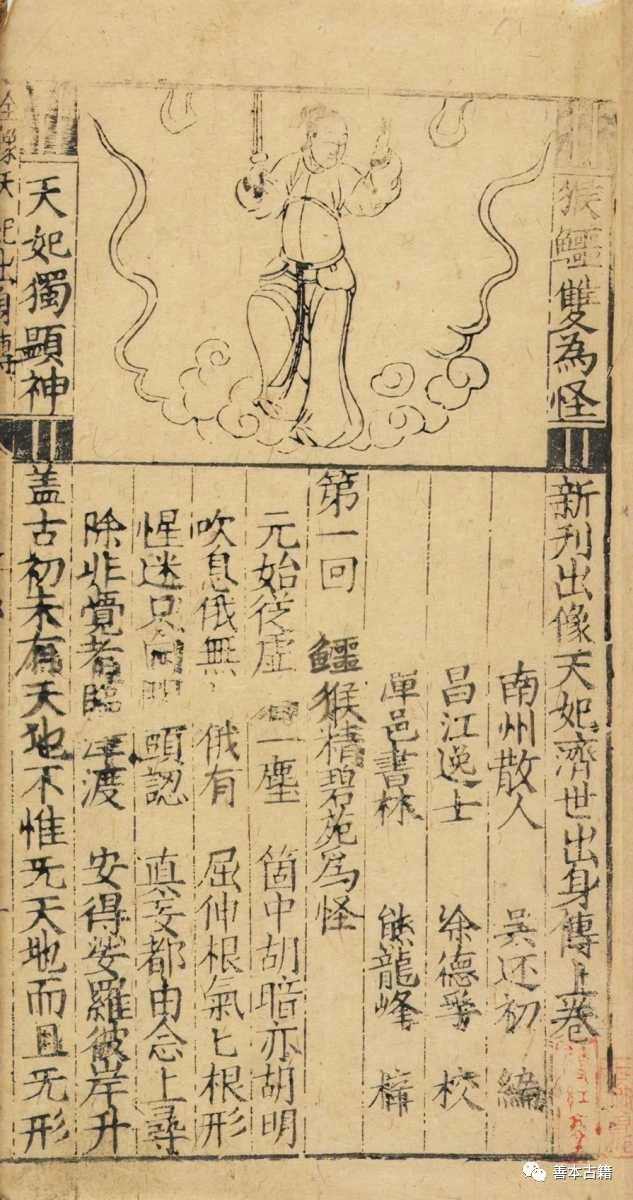 猴鱷雙為怪
天妃獨顯神
新刋出像天妃濟世出身傳上卷
南州散人 吳还初 編
昌江逸士 余德孚 校
潭邑書林 熊龍峰 梓
第一回 鱷猴精碧苑為怪
元始從虛 一塵 箇中胡暗亦胡明
吹息俄無 俄有 屈伸根氣匕根形
惺迷只向 頭認 真妄都由念上尋
除非覺者臨津渡 安得娑羅彼岸升
盖古初未有天地不惟旡天地而且旡形
全像天妃出身傳
善本古籍